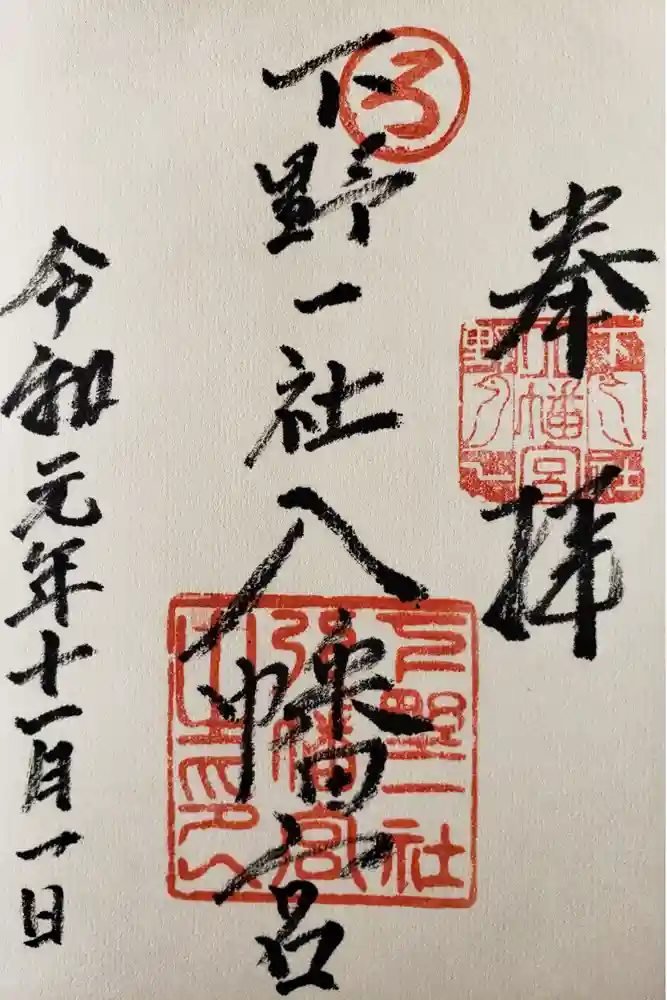 奉拝
下野社
八幡宮
一之野
ろ
下野一社八幡宮
下野一社
八幡宮
令和元年十一月一日